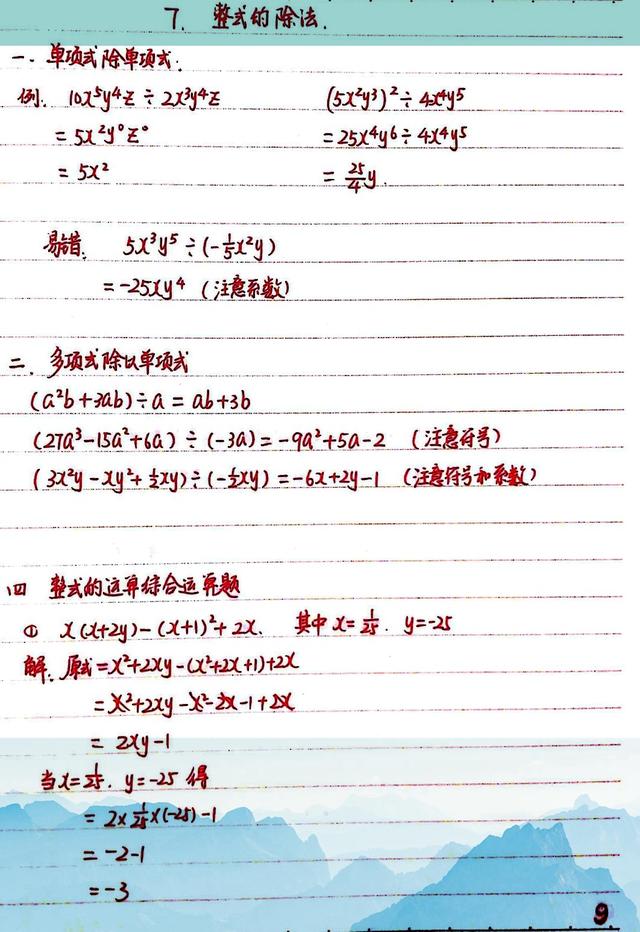 7. 整式的除法.
一. 单项式除单项式.
例. 10x⁵y⁴z ÷ 2x³y⁴z (5x²y³)² ÷ 4x⁴y⁵
= 5x²y⁰z⁰ = 25x⁴y⁶ ÷ 4x⁴y⁵
= 5x² = 25/4 y.
易错. 5x³y⁵ ÷ (-1/5x²y)
= -25xy⁴ (注意系数)
二. 多项式除以单项式
(a²b+3ab)÷a = ab+3b
(27a³-15a²+6a) ÷ (-3a) = -9a²+5a-2 (注意符号)
(3x²y-xy²+1/2xy)÷(-1/2xy) = -6x+2y-1 (注意符号和系数)
四 整式的运算综合运算题
① x(x+2y)-(x+1)²+2x. 其中x=1/25. y=-25
解. 原式=x²+2xy-(x²+2x+1)+2x
= x²+2xy-x²-2x-1+2x
= 2xy-1
当x=1/25. y=-25 得
= 2×1/25×(-25)-1
= -2-1
= -3
9